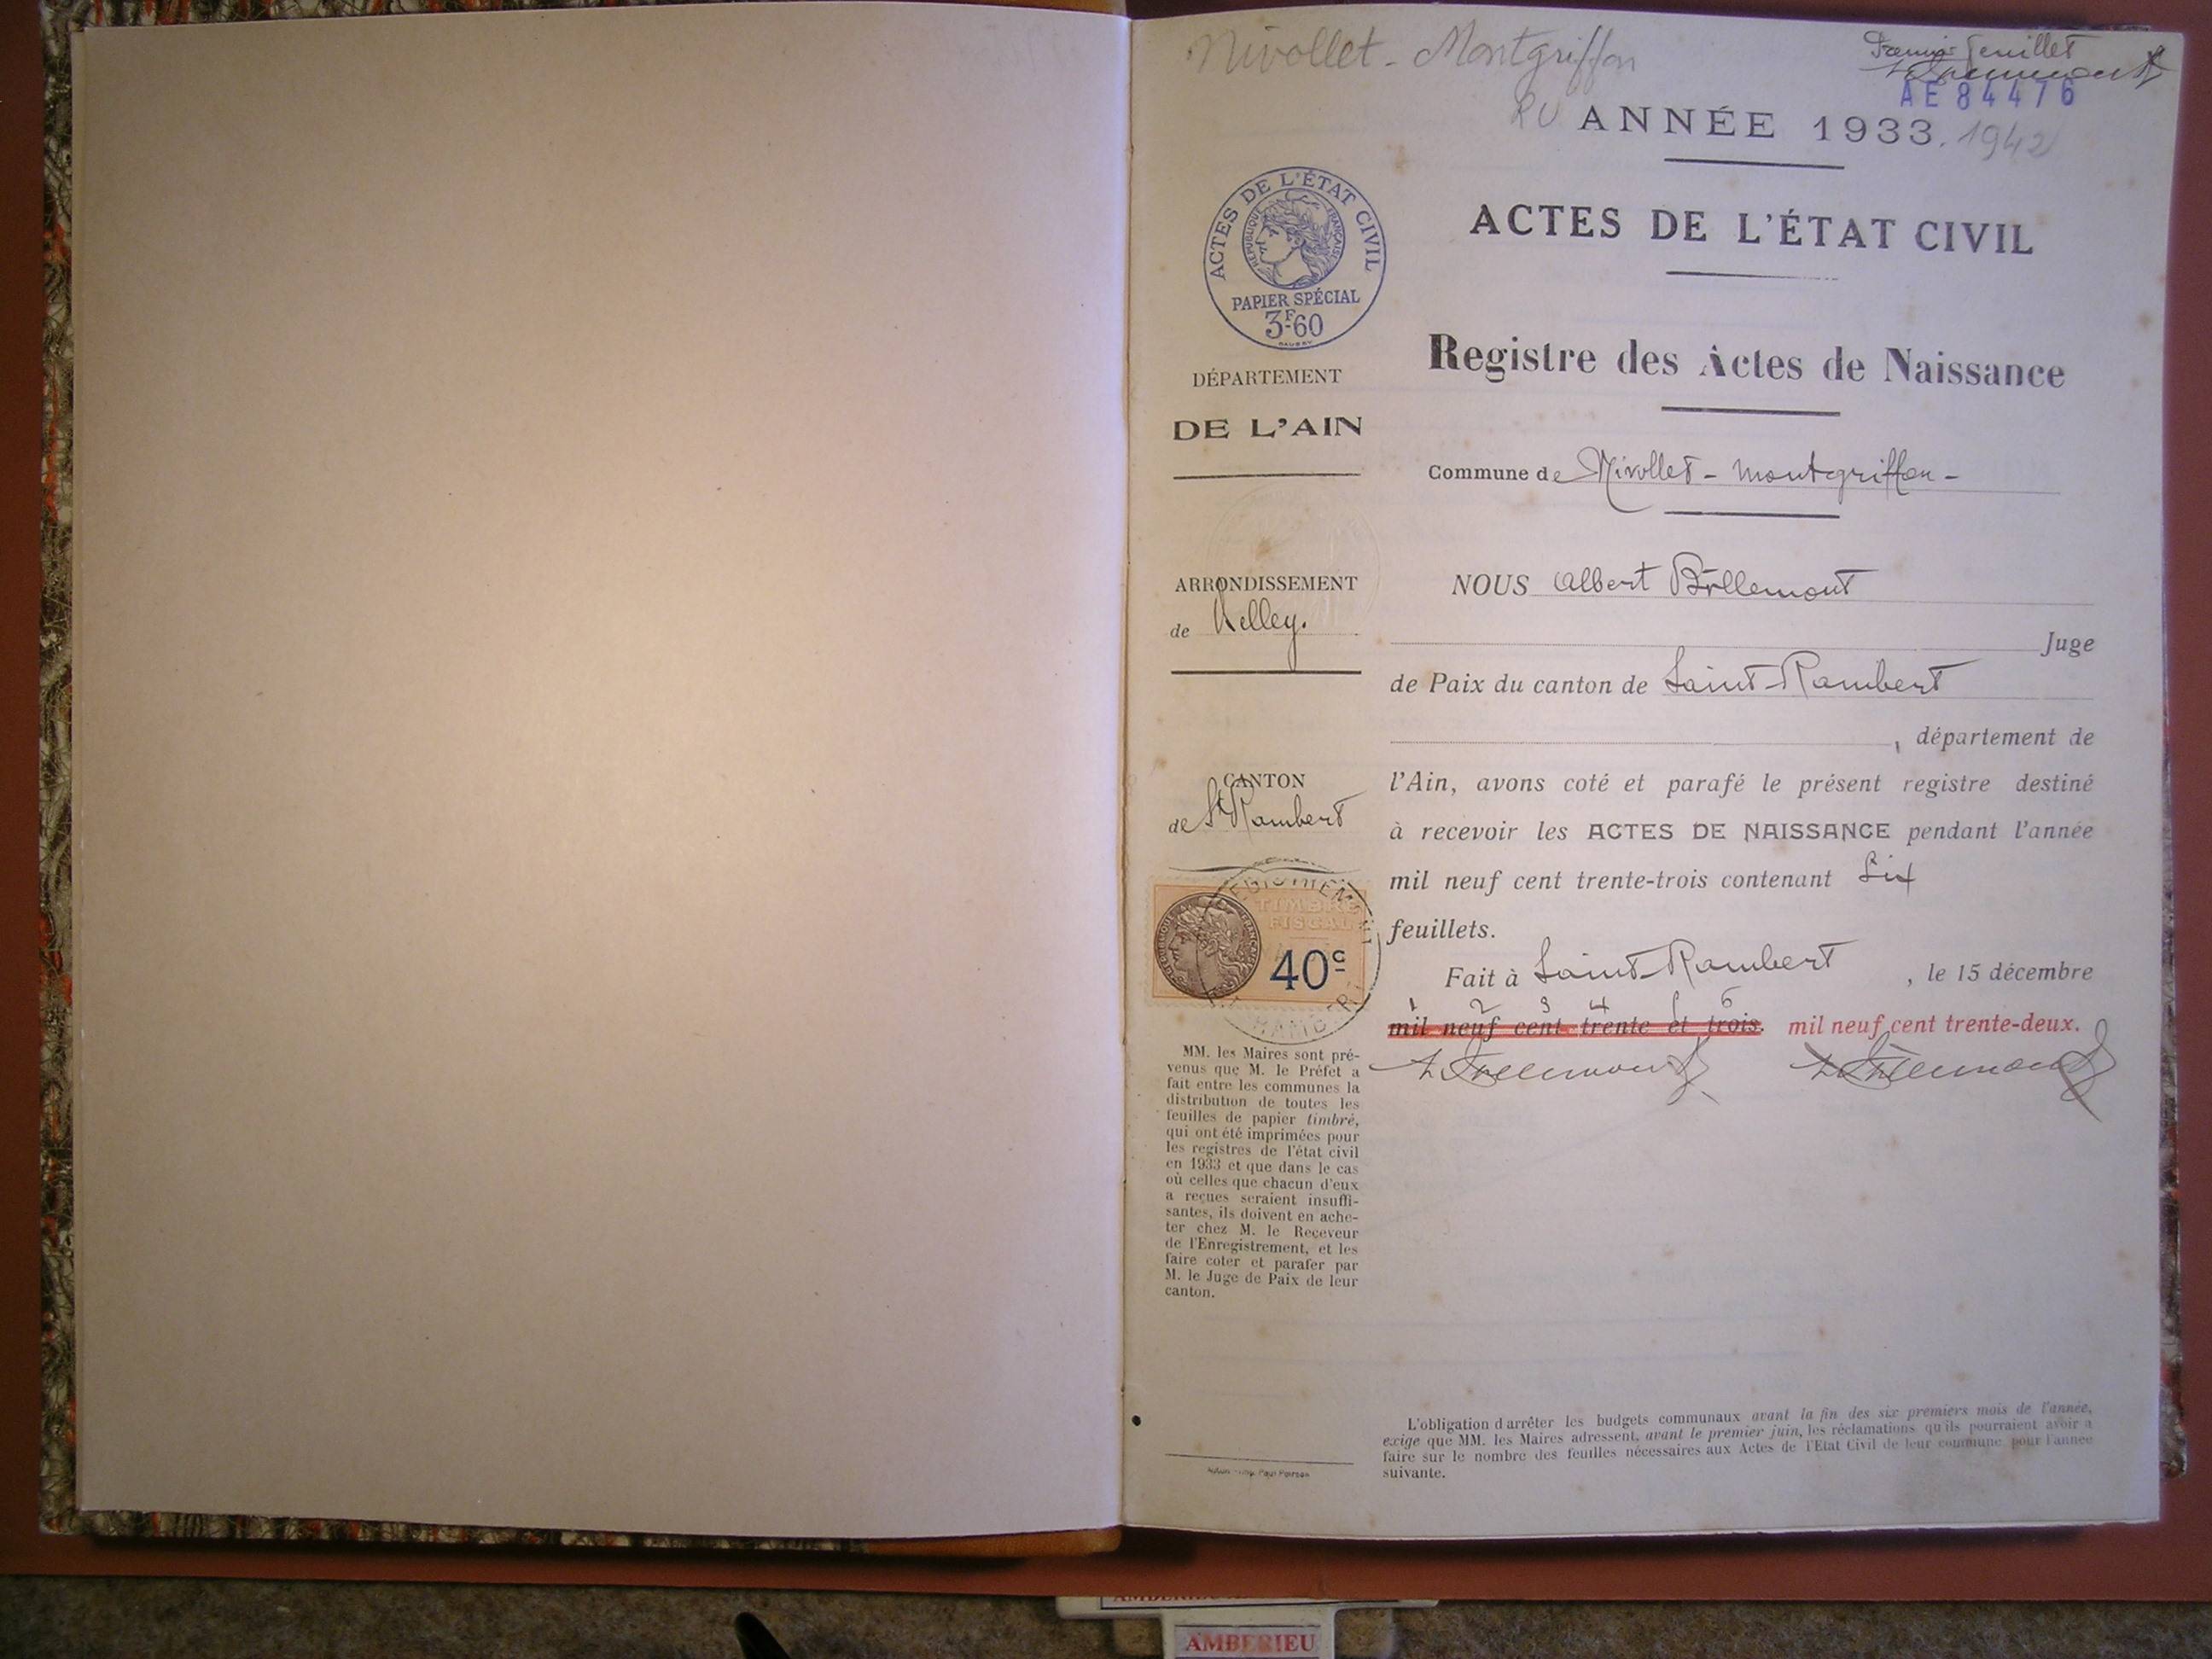 Nivollet - Montgriffon
Premier feuillet
AE 84476
RU ANNÉE 1933. 1942
ACTES DE L'ÉTAT CIVIL
RÉPUBLIQUE FRANÇAISE
PAPIER SPÉCIAL
3F60
DÉPARTEMENT
DE L'AIN
ARRONDISSEMENT
de Belley.
CANTON
de St Rambert
TIMBRE
FISCAL
40c
MM. les Maires sont pré-
venus que M. le Préfet a
fait entre les communes la
distribution de toutes les
feuilles de papier timbré,
qui ont été imprimées pour
les registres de l'état civil
en 1933 et que dans le cas
où celles que chacun d'eux
a reçues seraient insuffi-
santes, ils doivent en ache-
ter chez M. le Receveur
de l'Enregistrement, et les
faire coter et parafer par
M. le Juge de Paix de leur
canton.
ACTES DE L'ÉTAT CIVIL
Registre des Actes de Naissance
Commune de Nivollet - Montgriffon -
NOUS Albert Brillemont
Juge
de Paix du canton de Saint-Rambert
, département de
l'Ain, avons coté et parafé le présent registre destiné
à recevoir les ACTES DE NAISSANCE pendant l'année
mil neuf cent trente-trois contenant Six
feuillets.
Fait à Saint-Rambert , le 15 décembre
1 2 3 4 5 6
mil neuf cent trente et trois. mil neuf cent trente-deux.
L'obligation d'arrêter les budgets communaux avant la fin des six premiers mois de l'année,
exige que MM. les Maires adressent, avant le premier juin, les réclamations qu'ils pourraient avoir à
faire sur le nombre des feuilles nécessaires aux Actes de l'Etat Civil de leur commune pour l'année
suivante.
AMBERIEU